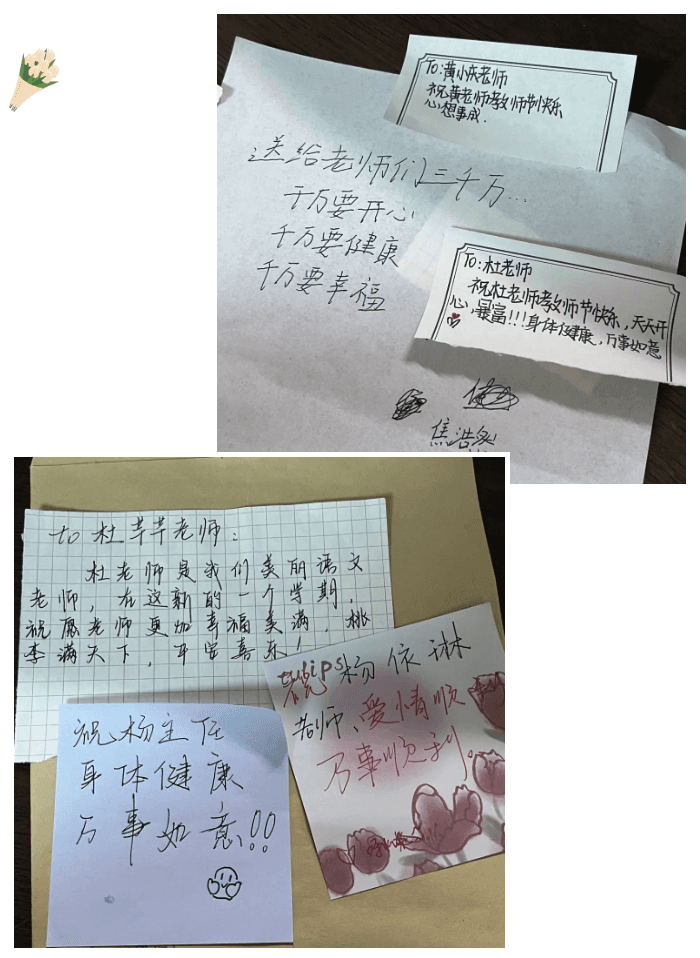 To:黄小庆老师
祝黄老师教师节快乐
心想事成.
送给老师们三千万...
千万要开心
千万要健康
千万要幸福
To:杜老师
祝杜老师教师节快乐,天天开
心,暴富!!!身体健康,万事如意
焦浩然
to 杜芊芊老师:
杜老师是我们美丽语文
老师,在这新的一个学期,
祝愿老师更加幸福美满,桃
李满天下,平安喜乐!
祝杨主任
身体健康
万事如意!!
tulips
祝杨依琳
老师、爱情顺利
万事顺利.